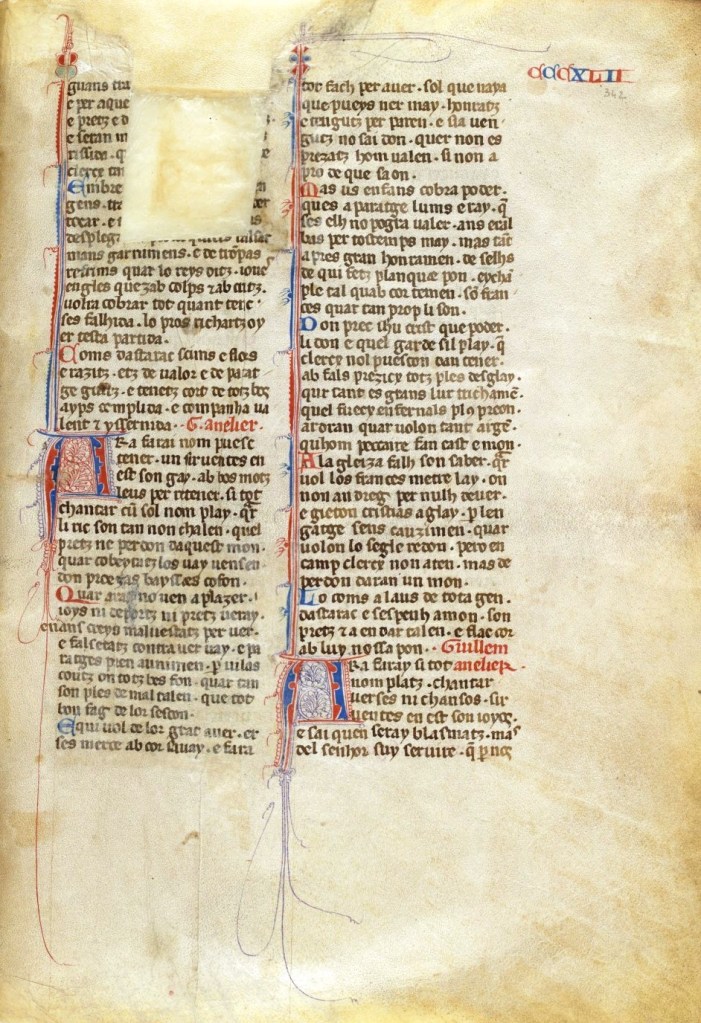 CCCXLII
342
guans tra
e per aque
e pretz e d
e setan m
rissida. q
cierce tm
Embre
gens. tra der
tocar. e i as
desplega
mans garnimens. e de trompas
retrims quar lo reys ditz. ioue
engles que zab colps et ab critz.
volra cobrar tot quant tenc
ses falhida. lo pros richartz oy
er testa partida.
Coms dastarac sauns e flors
e razitz. etz de valor e de parat
ge guitz. e tenetz cort de totz bos
ayps complida. e companha va
lent et yssernida. G. anelier.
ARa farai nom puesc
tener. un siruentes en
est son gay. ab bos motz
leus per retener. si tot
chantar cum sol nom play. qr
li ric son tan non chalen. quel
pretz ne perdon daquest mon.
quar cobeytatz los vay uensen
don proezas bayssaes cofon.
Quar aras no uen a plazer.
ioys ni deportz ni pretz ueray.
enans creys maluestatz per uer.
e falsetatz contra uer uay. e pa
ratges pren aunimen. p vilas
coutz on totz bes fon. quar tan
son ples de mal talen. que tot
bon fag de lor sescon.
E qui uol de lor grat auer. er
ses merce ab cor sauay. e fara
tot fach per auer. sol que uaya
que pueys ner may. hontatz
e tengutz per paren. e sia uen
gutz no sai don. quer non es
prezatz hom ualen. si non a
pro de que saon.
Mas us enfans cobra poder.
ques a paratge lums e ray. q̄
ses elh no pogra ualer. ans eral
bas per tostemps may. mas tāt
a pres gran hontamen. de selhs
de qui fetz planque pon. eychā
ple tal quab cor temen. sō fran
ces quar tan prop li son.
Don prec ihu crist que poder.
li don e quel garde sil play. q̄
clercy nol puescon dan tener.
ab fals prezicx totz ples desglay.
qur tant es grans lur trichamē.
quel fuecx enfernals plꝰ preon.
ardran quar uolon tant argē.
quhom peccaire fan cast e mon.
A la gleiza falh son saber. qr̄
uol los frances metre lay. on
non an dreg per nulh deuer.
e gieton cristias a glay. p̄ len
gatge sens cauzimen. quar
uolon lo segle redon. pero en
camp clercx non aten. mas de
perdon daran un mon.
Lo coms a laus de tota gen.
dastarac e ses peuh amon. son
pretz et a en dar talen. e flac cor
ab luy nossa pon. Guillem
ARa faray si tot anelier.
nom platz. chantar
uerses ni chansos. sir
uentes en est son ioyos.
e sai quen seray blasmatz. mas
del senhor suy seruire. q̄ p̄ nos